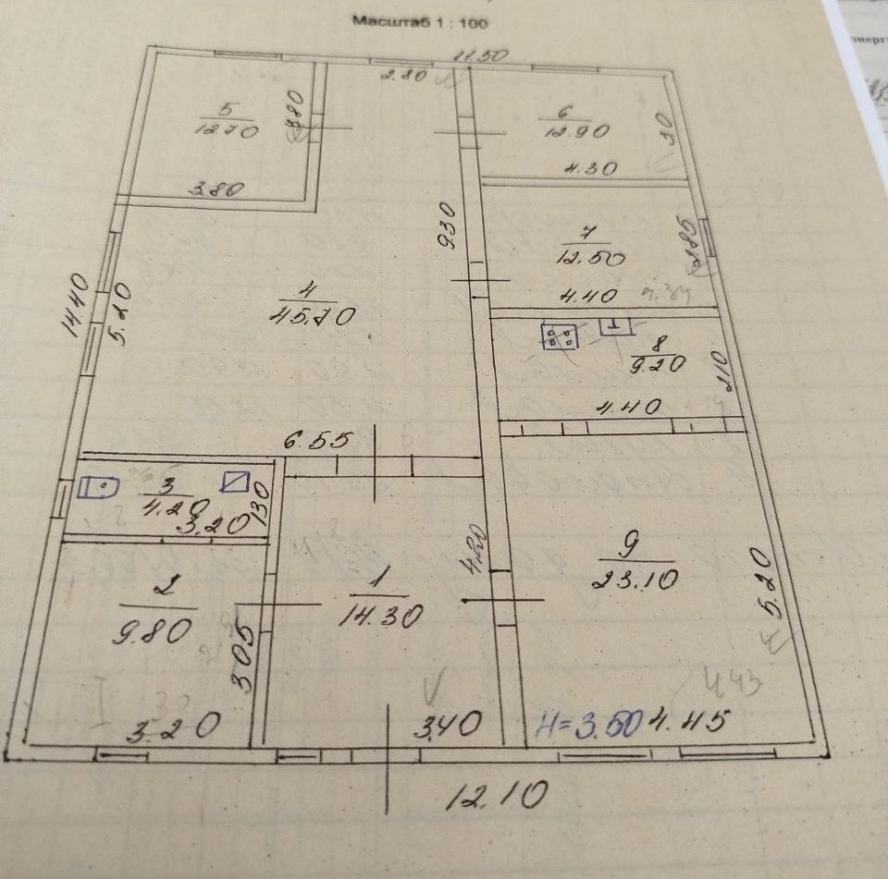 Масштаб 1 : 100
11.50
2.80
5
12.70
3.80
3.80
6
12.90
4.30
9.30
7
12.50
2.85
4.40
14.40
5.20
4
45.70
8
9.20
2.10
4.40
6.55
3
4.20
3.20
1.30
4.20
9
23.10
5.20
2
9.80
3.05
1
14.30
3.20
3.40
H=3.50
4.45
4.43
12.10